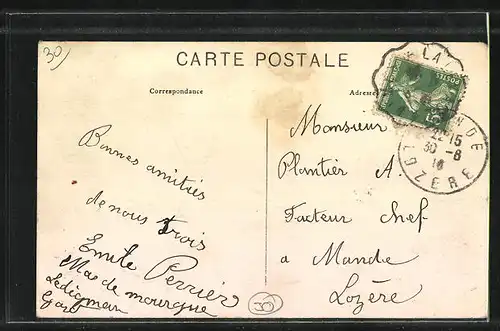 30
CARTE POSTALE
Correspondance
Adresse
Bonnes amitiés
de nous trois
Emile Perrier
Mas de mourgue
Lédignan
Gard
30
Monsieur
Plantier A.
Facteur chef
a Mande
Lozère
POSTES
21-15
30-8
16
LOZERE